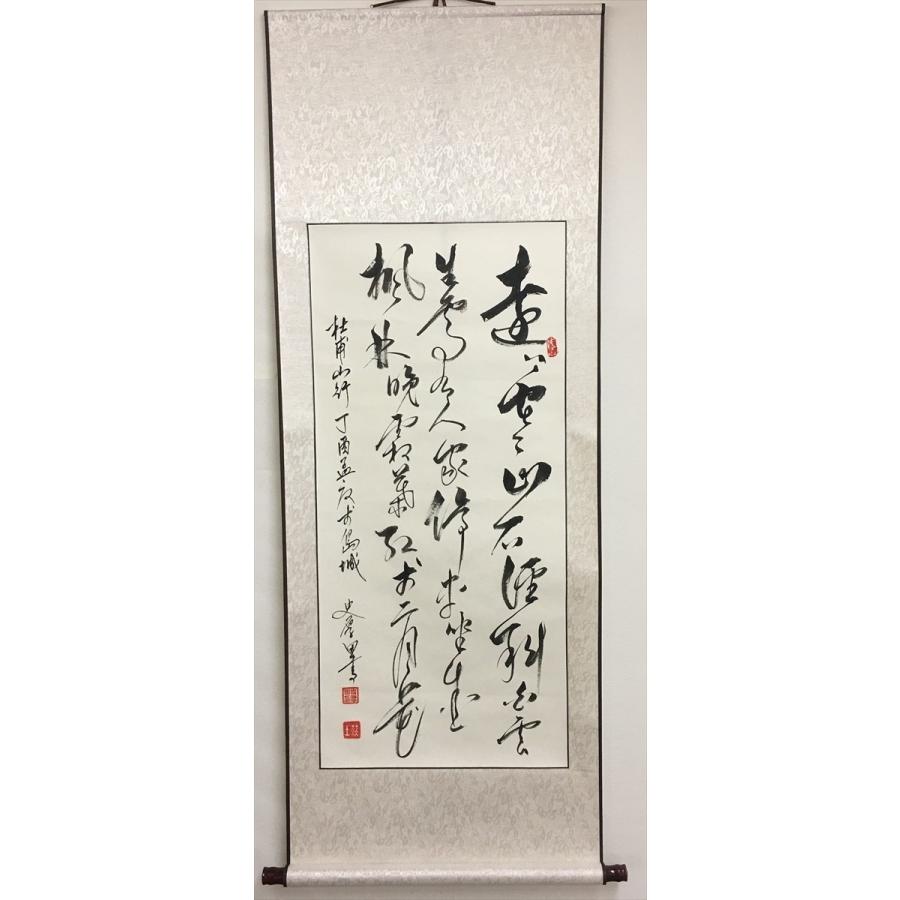 遠上寒山石徑斜白雲
生處有人家停車坐愛
楓林晚霜葉紅於二月花
杜甫山行丁酉孟夏於島城